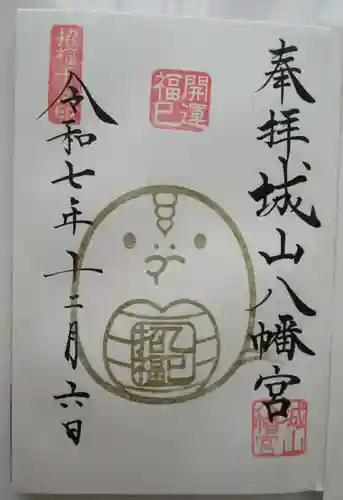 奉拝城山八幡宮
開運
福巳
乙巳
招福
令和七年十二月六日
城山
八幡宮